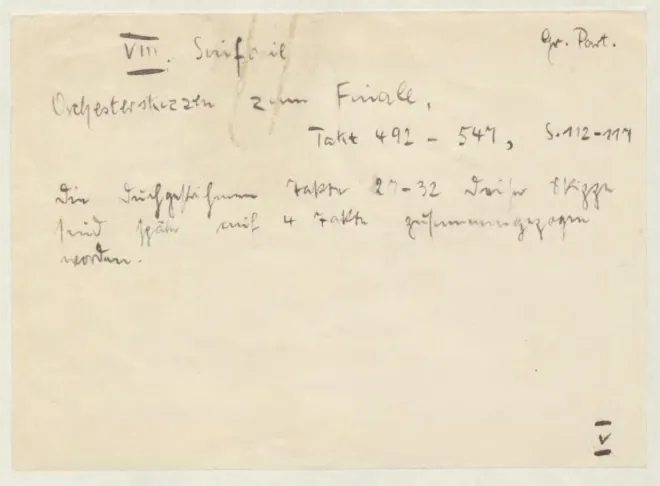 VIII. Sinfonie
Gr. Part.
Orchesterskizzen zum Finale,
Takt 492 – 547, S. 112–117
Die durchgestrichenen Takte 27–32 dieser Skizze
sind später auf 4 Takte zusammengezogen
worden.
V